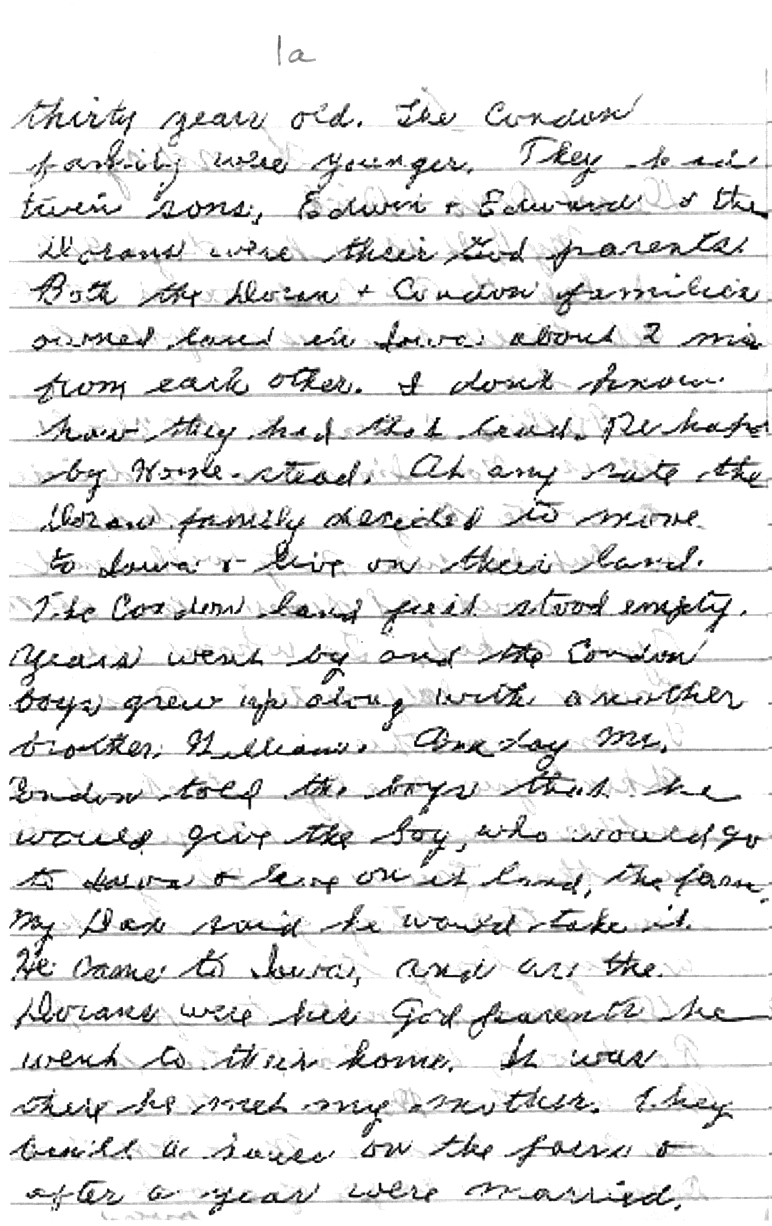 1a
thirty years old. The Condon
family were younger. They had
twin sons, Edwin + Edward & the
Dorans were their God parents.
Both the Doran + Condon families
owned land in Iowa about 2 mi
from each other. I dont know
how they had that land. Perhaps
by Home-stead. At any rate the
Doran family decided to move
to Iowa & live on their land.
The Condon land just stood empty.
Years went by and the Condon
boys grew up along with another
brother, William. One day Mr.
Condon told the boys that he
would give the boy, who would go
to Iowa & live on it land, the farm.
My Dad said he would take it.
He came to Iowa, and as the
Dorans were his God parents he
went to their home. It was
there he met my mother. They
built a house on the farm &
after a year were married.